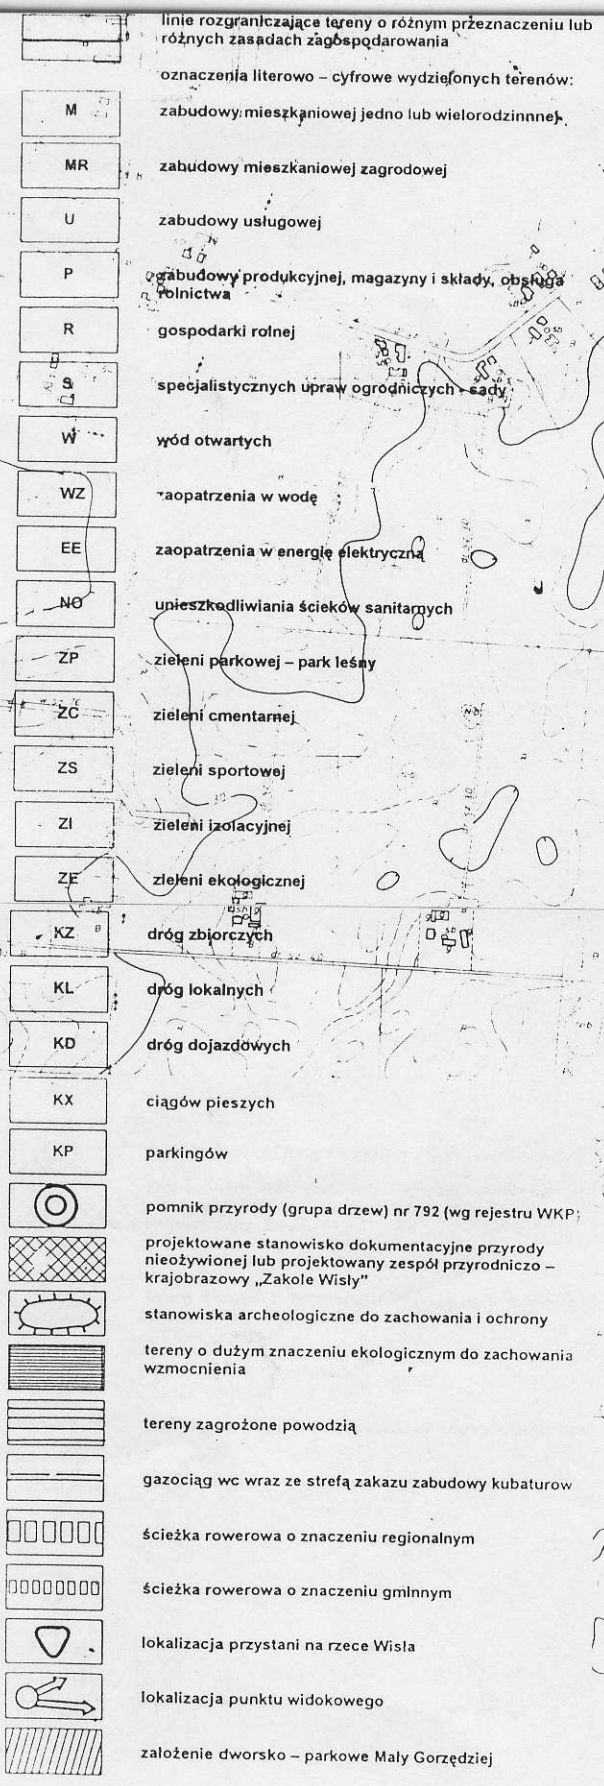 linie rozgraniczające tereny o różnym przeznaczeniu lub
różnych zasadach zagospodarowania
oznaczenia literowo – cyfrowe wydzielonych terenów:
M zabudowy mieszkaniowej jedno lub wielorodzinnnej
MR zabudowy mieszkaniowej zagrodowej
U zabudowy usługowej
P zabudowy produkcyjnej, magazyny i składy, obsługa
rolnictwa
R gospodarki rolnej
S specjalistycznych upraw ogrodniczych - sady
W wód otwartych
WZ zaopatrzenia w wodę
EE zaopatrzenia w energię elektryczną
NO unieszkodliwiania ścieków sanitarnych
ZP zieleni parkowej – park leśny
ZC zieleni cmentarnej
ZS zieleni sportowej
ZI zieleni izolacyjnej
ZE zieleni ekologicznej
KZ dróg zbiorczych
KL dróg lokalnych
KD dróg dojazdowych
KX ciągów pieszych
KP parkingów
pomnik przyrody (grupa drzew) nr 792 (wg rejestru WKP;
projektowane stanowisko dokumentacyjne przyrody
nieożywionej lub projektowany zespół przyrodniczo –
krajobrazowy „Zakole Wisły"
stanowiska archeologiczne do zachowania i ochrony
tereny o dużym znaczeniu ekologicznym do zachowania
wzmocnienia
tereny zagrożone powodzią
gazociąg wc wraz ze strefą zakazu zabudowy kubaturow
ścieżka rowerowa o znaczeniu regionalnym
ścieżka rowerowa o znaczeniu gminnym
lokalizacja przystani na rzece Wisła
lokalizacja punktu widokowego
założenie dworsko – parkowe Mały Gorzędziej